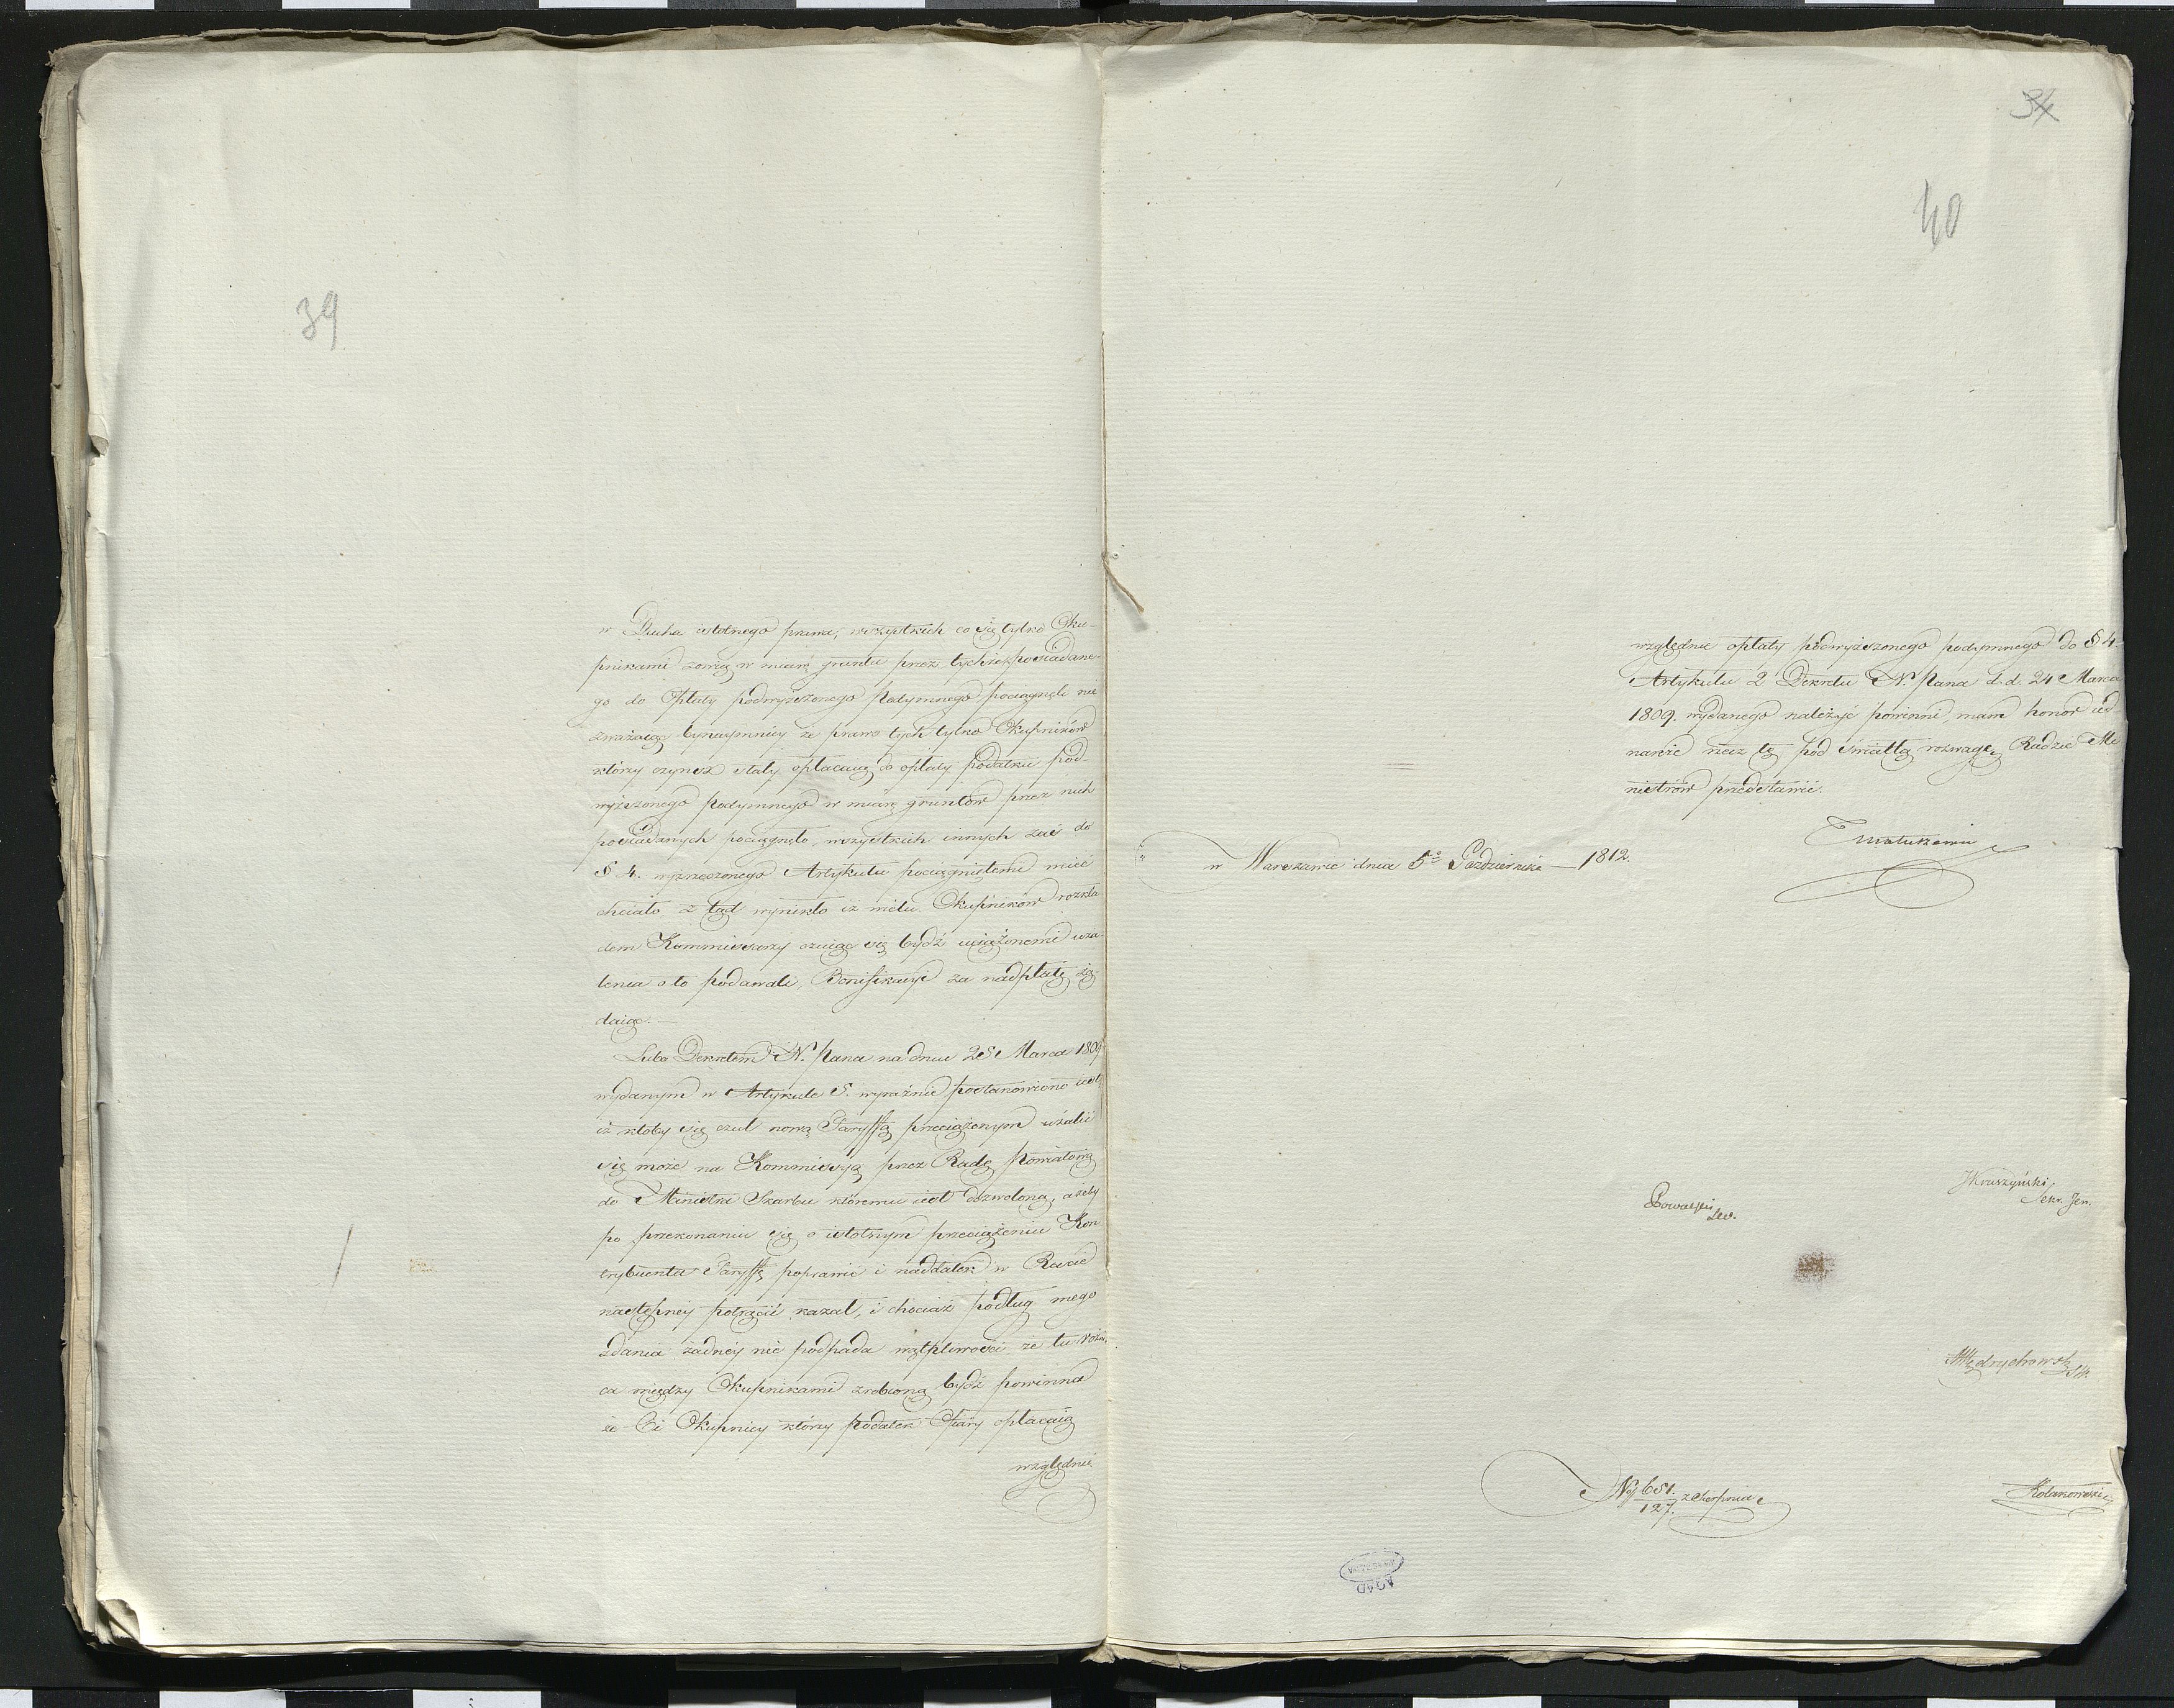 39
w Ducha istotnego prawa, wszystkich co się tylko Oku-
pnikami zowią w miarę gruntu przez tychże posiadane-
go do Opłaty podwyższonego Podymnego pociągnęli nie
zważaiąc bynaymniey że prawo tych tylko Okupników
którzy czynsz stały opłacaią do opłaty podatku pod-
wyższonego podymnego w miarę gruntów przez nich
posiadanych pociągnęło, wszystkich innych zaś do
§ 4. wyrzeczonego Artykułu pociągniętemi mieć
chciało z tąd wynikło iż wielu Okupników rozkła
dem Kommissarzy czuiąc się bydź uciążonemi uża-
lenia o to podawali, Bonifikacyi za nadpłatę żą-
daiąc.—
Lubo Dekretem N. Pana na dniu 25 Marca 1809
wydanym w Artykule 5. wyraźnie postanowiono iest,
iż ktoby się czuł nową Taryffą przeciążonym użalić
się może na Kommissyą przez Radę Powiatową
do Ministra Skarbu któremu iest dozwolono, ażeby
po przekonaniu się o istotnym przeciążeniu Kon
trybuenta Taryffę poprawić i naddatek w Racie
następney potrącić kazał, i chociaż podług mego
zdania żadney nie podpada wątpliwości że tu różni-
ca między Okupnikami zrobioną bydź powinna
że Ci Okupnicy którzy podatek Ofiary opłacaią
względnie
34
40
względnie opłaty podwyższonego podymnego do § 4.
Artykułu 2 Dekretu N. Pana d. d. 24 Marca
1809. wydanego należyć powinni, mam honor ied
nakże rzecz tę pod światłą rozwagę Radzie Mi
nistrów przedstawić.
T Matuszewic
w Warszawie dnia 5go Października 1812.
JKruszyński
Sekr. Jen.
Mędrychowski
Ny 651. z Sierpnia
127.
Kolanowski
AGAD